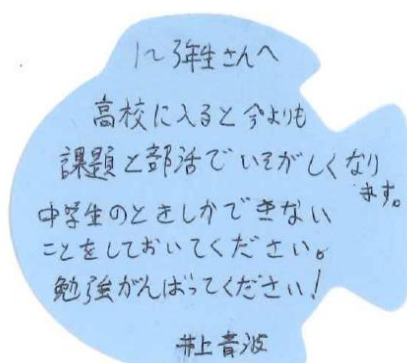 1〜3年生さんへ
高校に入ると今よりも
課題と部活でいそがしくなり
ます。
中学生のときしかできない
ことをしておいてください。
勉強がんばってください!
井上音波